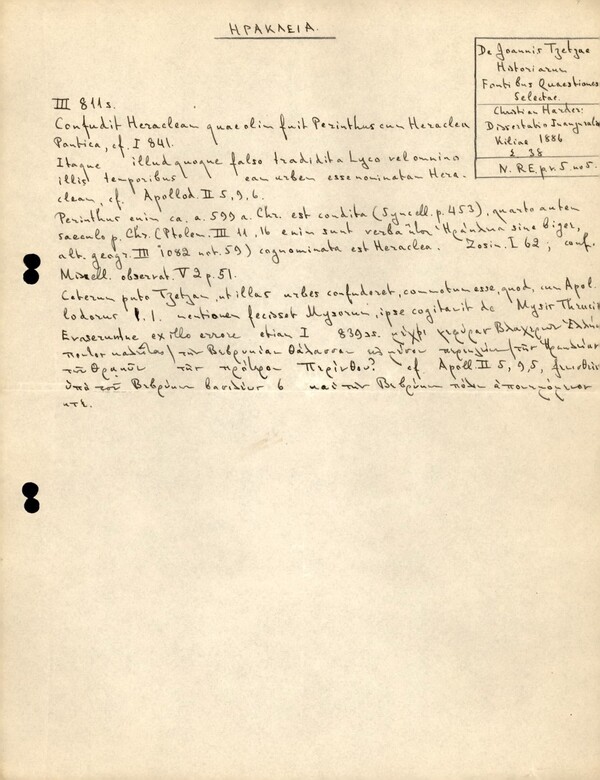 ΗΡΑΚΛΕΙΑ.
De Joannis Tzetzae
Historiarum
Fontibus Quaestiones
Selectae
Christian Harder:
Dissertatio Inauguralis
Kiliae 1886
N. R. E. pv. 5. no 5.
III 811s.
Confudit Heracleam quae olim fuit Perinthus cum Heraclea
Pontica, cf. I 841.
Itaque illud quoque falso tradidit a Lyco vel omnino
illis temporibus eam urbem esse nominatam Hera-
cleam, cf. Apollod. II 5, 9, 6.
Perinthus enim ca. a. 599 a. Chr. est condita (Syncell. p. 453), quarto autem
saeculo p. Chr. (Ptolem. III 11, 16 enim sunt verba ἤτοι Ἡράκλεια sine biger,
alt. geogr. III 1082 not. 59) cognominata est Heraclea. Zosin. I 62; conf.
Miscell. observat. V 2 p. 51.
Ceterum puto Tzetzam, ut illas urbes confuderet, commotum esse, quod, cum Apol-
lodorus l. l. mentionem fecisset Mysorum, ipse cogitavit de Mysis Thraciis
Evaserunt ex illo errore etiam I 839ss. μέχρι γεφύρας Βλαχερνῶν
τὴν Βεβρυκίαν θάλασσαν
τῶν Θρακῶν τῆς πρόερον Περίνθου? cf Apoll. II 5, 9, 5,
ὑπὸ τοῦ Βεβρύκων βασιλέως 6 καὶ τὴν Βεβρύκων πόλιν
κτλ.